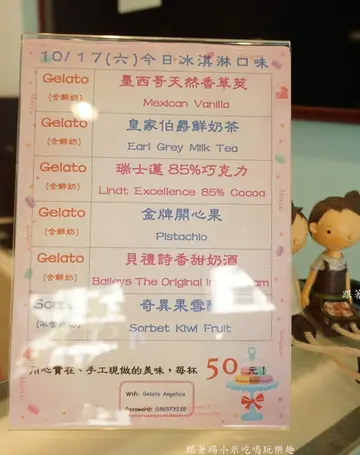 10/17(六)今日冰淇淋口味
Gelato
(含鮮奶)
墨西哥天然香草莢
Mexican Vanilla
Gelato
(含鮮奶)
皇家伯爵鮮奶茶
Earl Grey Milk Tea
Gelato
(含鮮奶)
瑞士蓮 85%巧克力
Lindt Excellence 85% Cocoa
Gelato
(含鮮奶)
金牌開心果
Pistachio
Gelato
(含鮮奶)
貝禮詩香甜奶酒
Baileys The Original
Sorbet
奇異果雪
Sorbet Kiwi Fruit
用心實在、手工現做的美味，每杯 50 元！
Wifi: Gelato Angelica
Password:
跟著踢小米吃喝玩樂趣
跟著